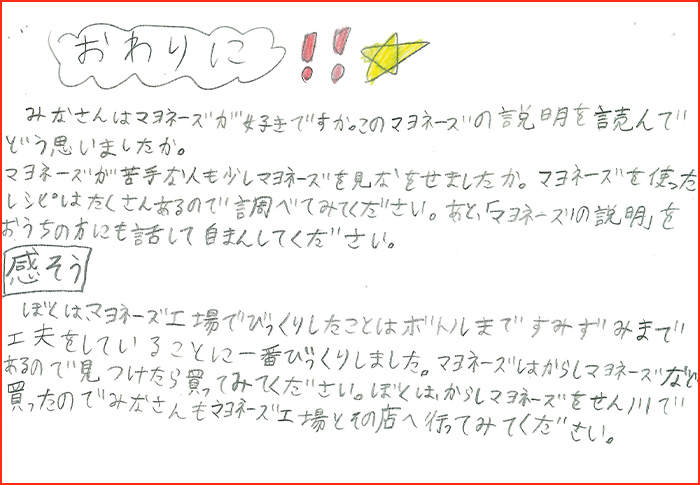 おわりに!!
みなさんはマヨネーズが好きですか。このマヨネーズの説明を読んで
どう思いましたか。
マヨネーズが苦手な人も少しマヨネーズを見なをせましたか。マヨネーズを使った
レシピはたくさんあるので調べてみてください。あと、「マヨネーズの説明」を
おうちの方にも話して自まんしてください。
感そう
ぼくは、マヨネーズ工場でびっくりしたことはボトルまですみずみまで
工夫をしていることに一番びっくりしました。マヨネーズはからしマヨネーズなど
あるので見つけたら買ってみてください。ぼくは、からしマヨネーズをせん川で
買ったのでみなさんもマヨネーズ工場とその店へ行ってみてください。